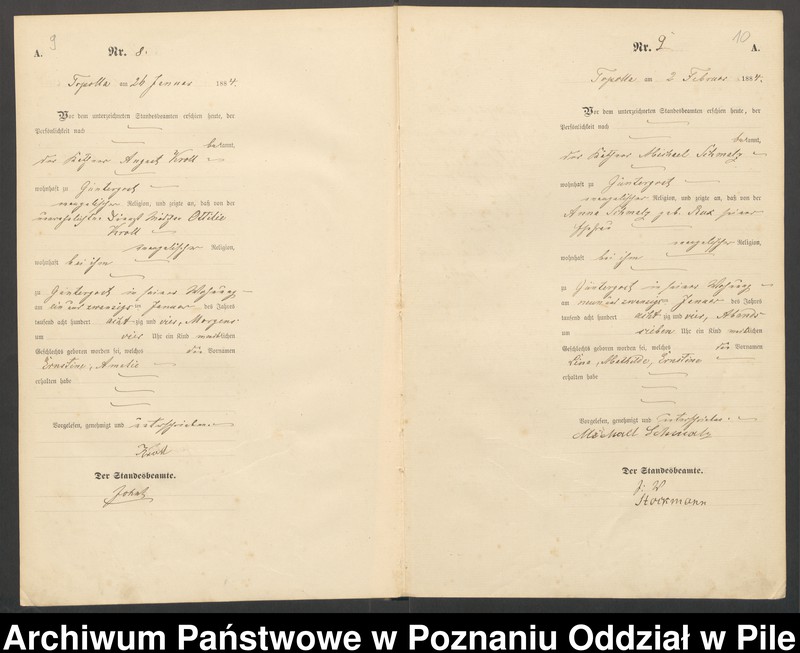 9
A.
Nr. 8.
Topolla am 26 Januar 1884.
Vor dem unterzeichneten Standesbeamten erschien heute, der
Persönlichkeit nach
bekannt,
der August Kroll
wohnhaft zu
evangelischer Religion, und zeigte an, daß von der
unverehelichten Ottilie
Kroll
evangelischer Religion,
wohnhaft bei ihm
zu in seiner Wohnung
am ein und zwanzigsten Januar des Jahres
tausend acht hundert acht zig und vier, Morgens
um vier Uhr ein Kind weiblichen
Geschlechts geboren worden sei, welches die Vornamen
Ernstine, Amalie
erhalten habe
Vorgelesen, genehmigt und unterschrieben.
Kroll
Der Standesbeamte.
10
Nr. 9
A.
Topolla am 2 Februar 1884.
Vor dem unterzeichneten Standesbeamten erschien heute, der
Persönlichkeit nach
bekannt,
der Michael Schmalz
wohnhaft zu
evangelischer Religion, und zeigte an, daß von der
Anna Schmalz geb. seiner
Ehefrau
evangelischer Religion,
wohnhaft bei ihm
zu in seiner Wohnung
am neun und zwanzigsten Januar des Jahres
tausend acht hundert acht zig und vier, Abends
um sieben Uhr ein Kind weiblichen
Geschlechts geboren worden sei, welches die Vornamen
Mathilde, Ernstine
erhalten habe
Vorgelesen, genehmigt und unterschrieben.
Michael Schmalz
Der Standesbeamte.
Stockmann
Archiwum Państwowe w Poznaniu Oddział w Pile